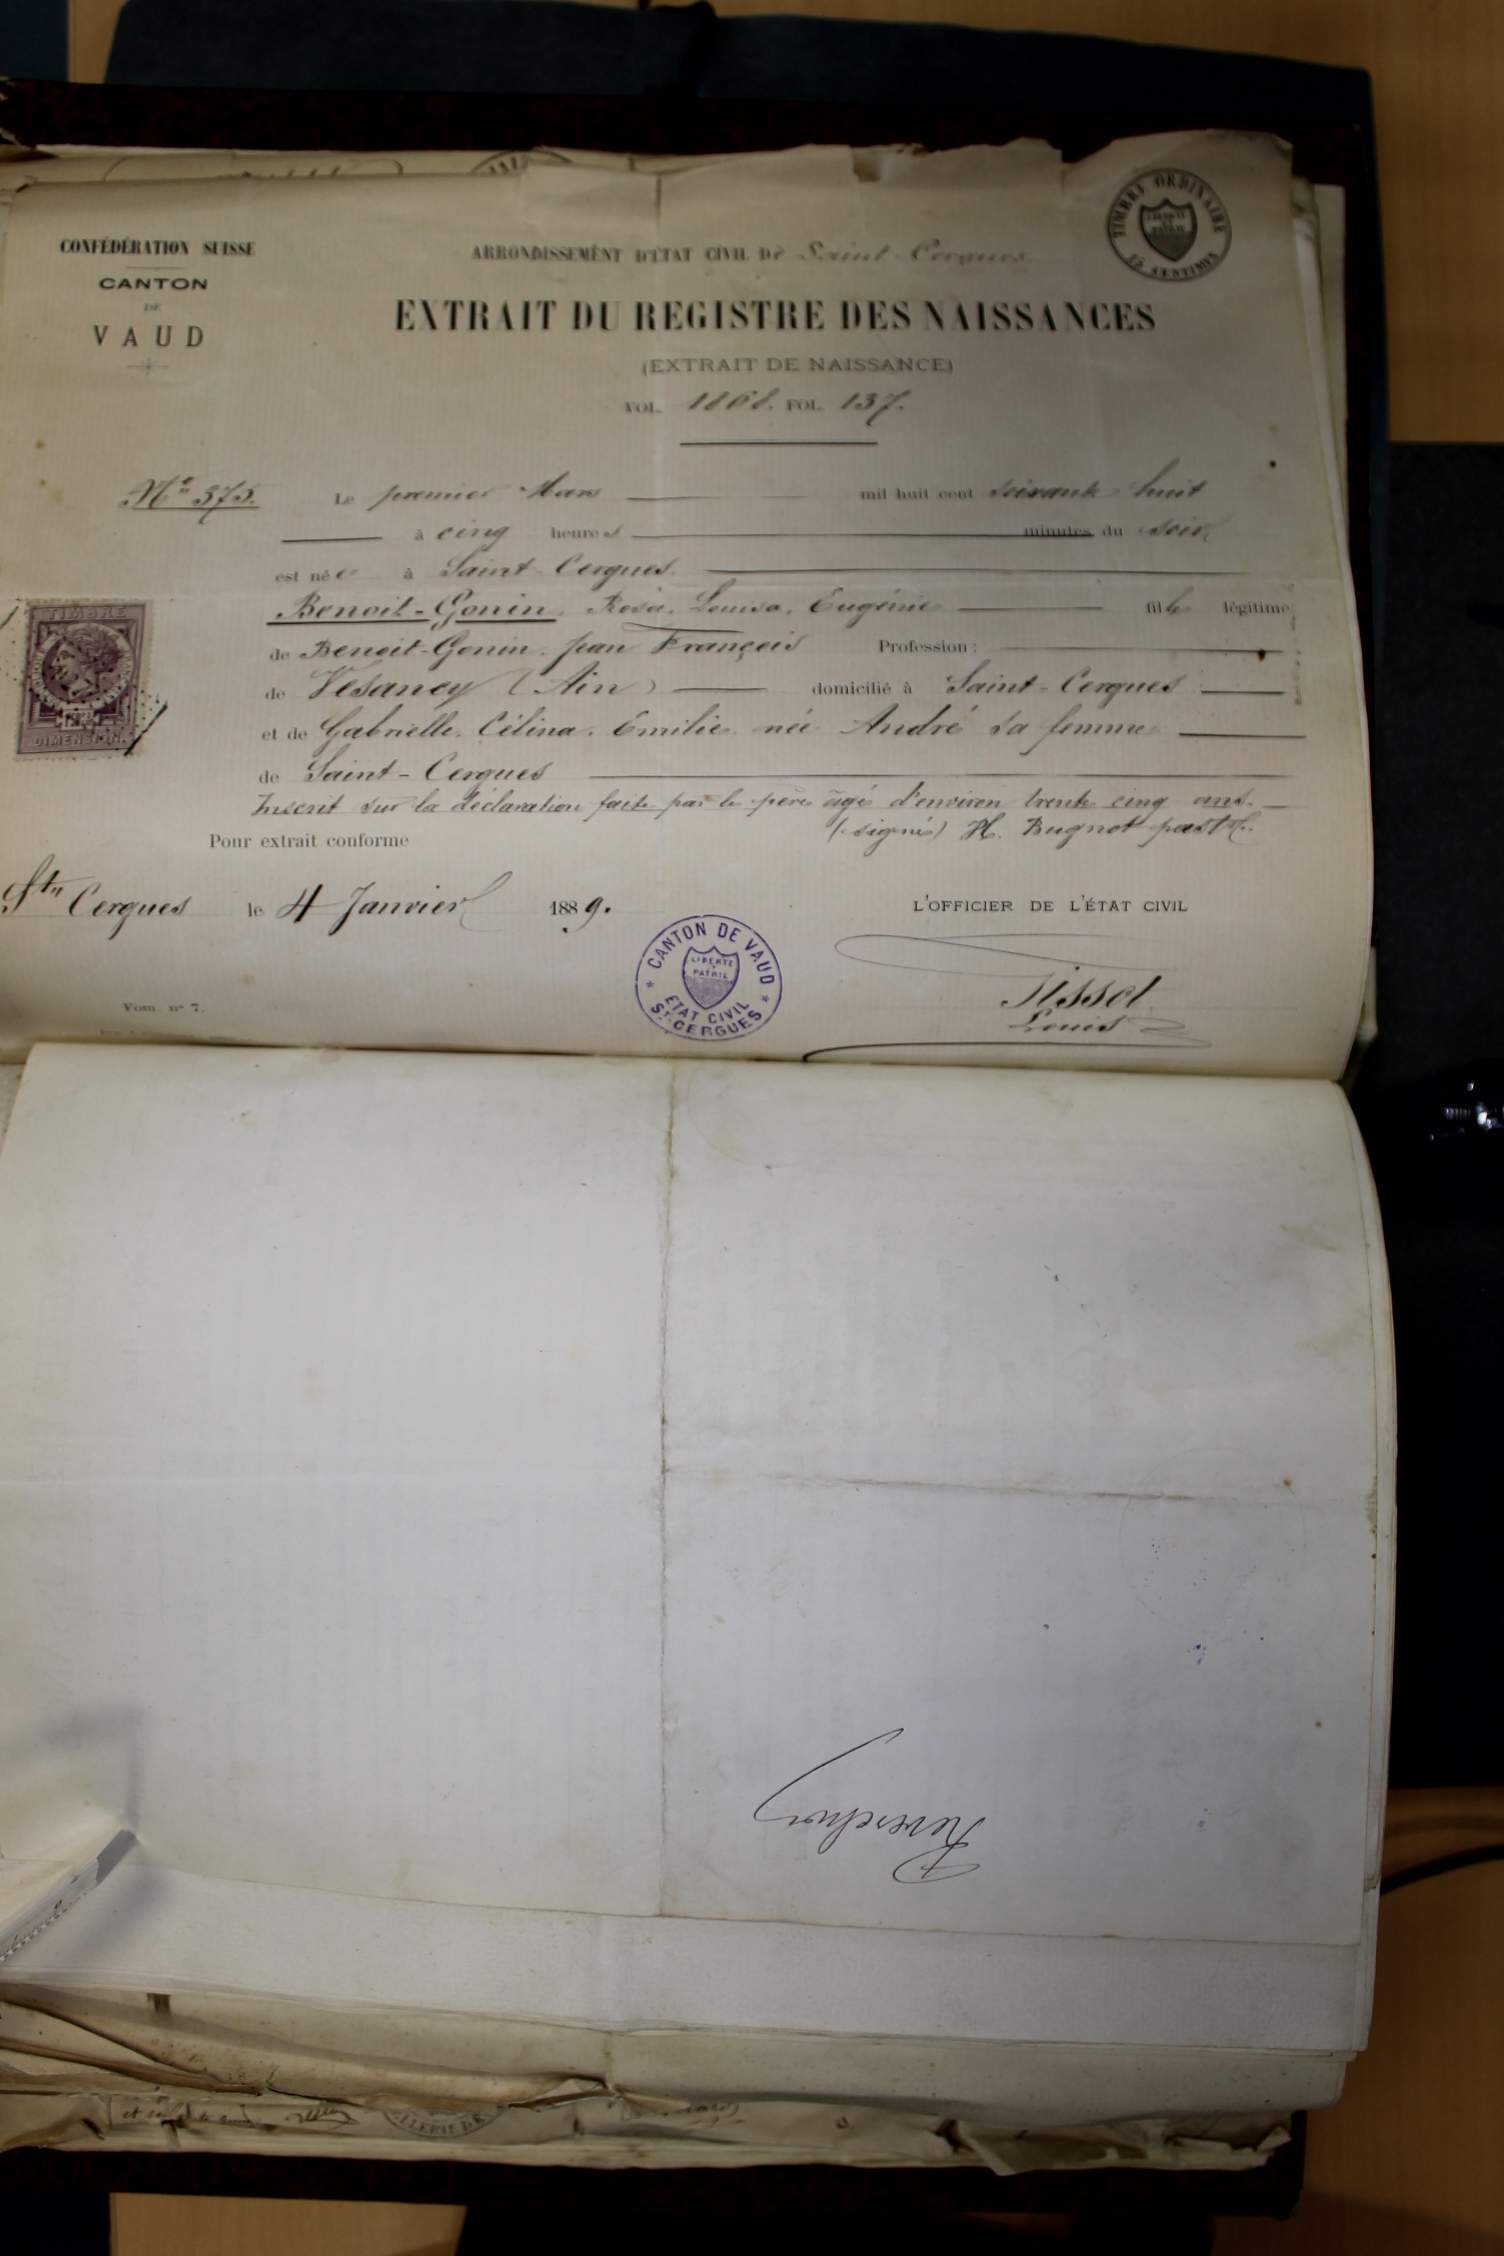 TIMBRE ORDINAIRE
LIBERTÉ ET PATRIE
15 CENTIMES
CONFÉDÉRATION SUISSE
CANTON
DE
VAUD
ARRONDISSEMENT D'ÉTAT CIVIL DE Saint-Cergues
EXTRAIT DU REGISTRE DES NAISSANCES
(EXTRAIT DE NAISSANCE)
VOL. 1868. FOL. 137.
No 375.
Le premier Mars mil huit cent soixante huit
à cinq heures minutes du soir
est née à Saint-Cergues.
Benoit-Gonin, Rosa, Louisa, Eugénie fille légitime
de Benoit-Gonin, Jean François Profession :
de Vesancy (Ain) domicilié à Saint-Cergues
et de Gabrielle, Célina, Emilie, née André sa femme
de Saint-Cergues
Inscrit sur la déclaration faite par le père âgé d'environ trente cinq ans.
(signé) H. Bugnot past.
Pour extrait conforme
St. Cergues le 4 Janvier 1889.
L'OFFICIER DE L'ÉTAT CIVIL
Tissot
Louis
TIMBRE
DIMENSION
CANTON DE VAUD
LIBERTÉ
PATRIE
ETAT CIVIL
ST. CERGUES
Fom. no 7.
Reverchon